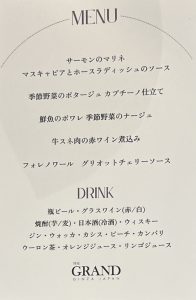 MENU
サーモンのマリネ
マスキャビアとホースラディッシュのソース
季節野菜のポタージュ カプチーノ仕立て
鮮魚のポワレ 季節野菜のナージュ
牛スネ肉の赤ワイン煮込み
フォレノワール グリオットチェリーソース
DRINK
瓶ビール・グラスワイン(赤/白)
焼酎(芋/麦)・日本酒(冷酒)・ウィスキー
ジン・ウォッカ・カシス・ピーチ・カンパリ
ウーロン茶・オレンジジュース・リンゴジュース
THE
GRAND
GINZA JAPAN